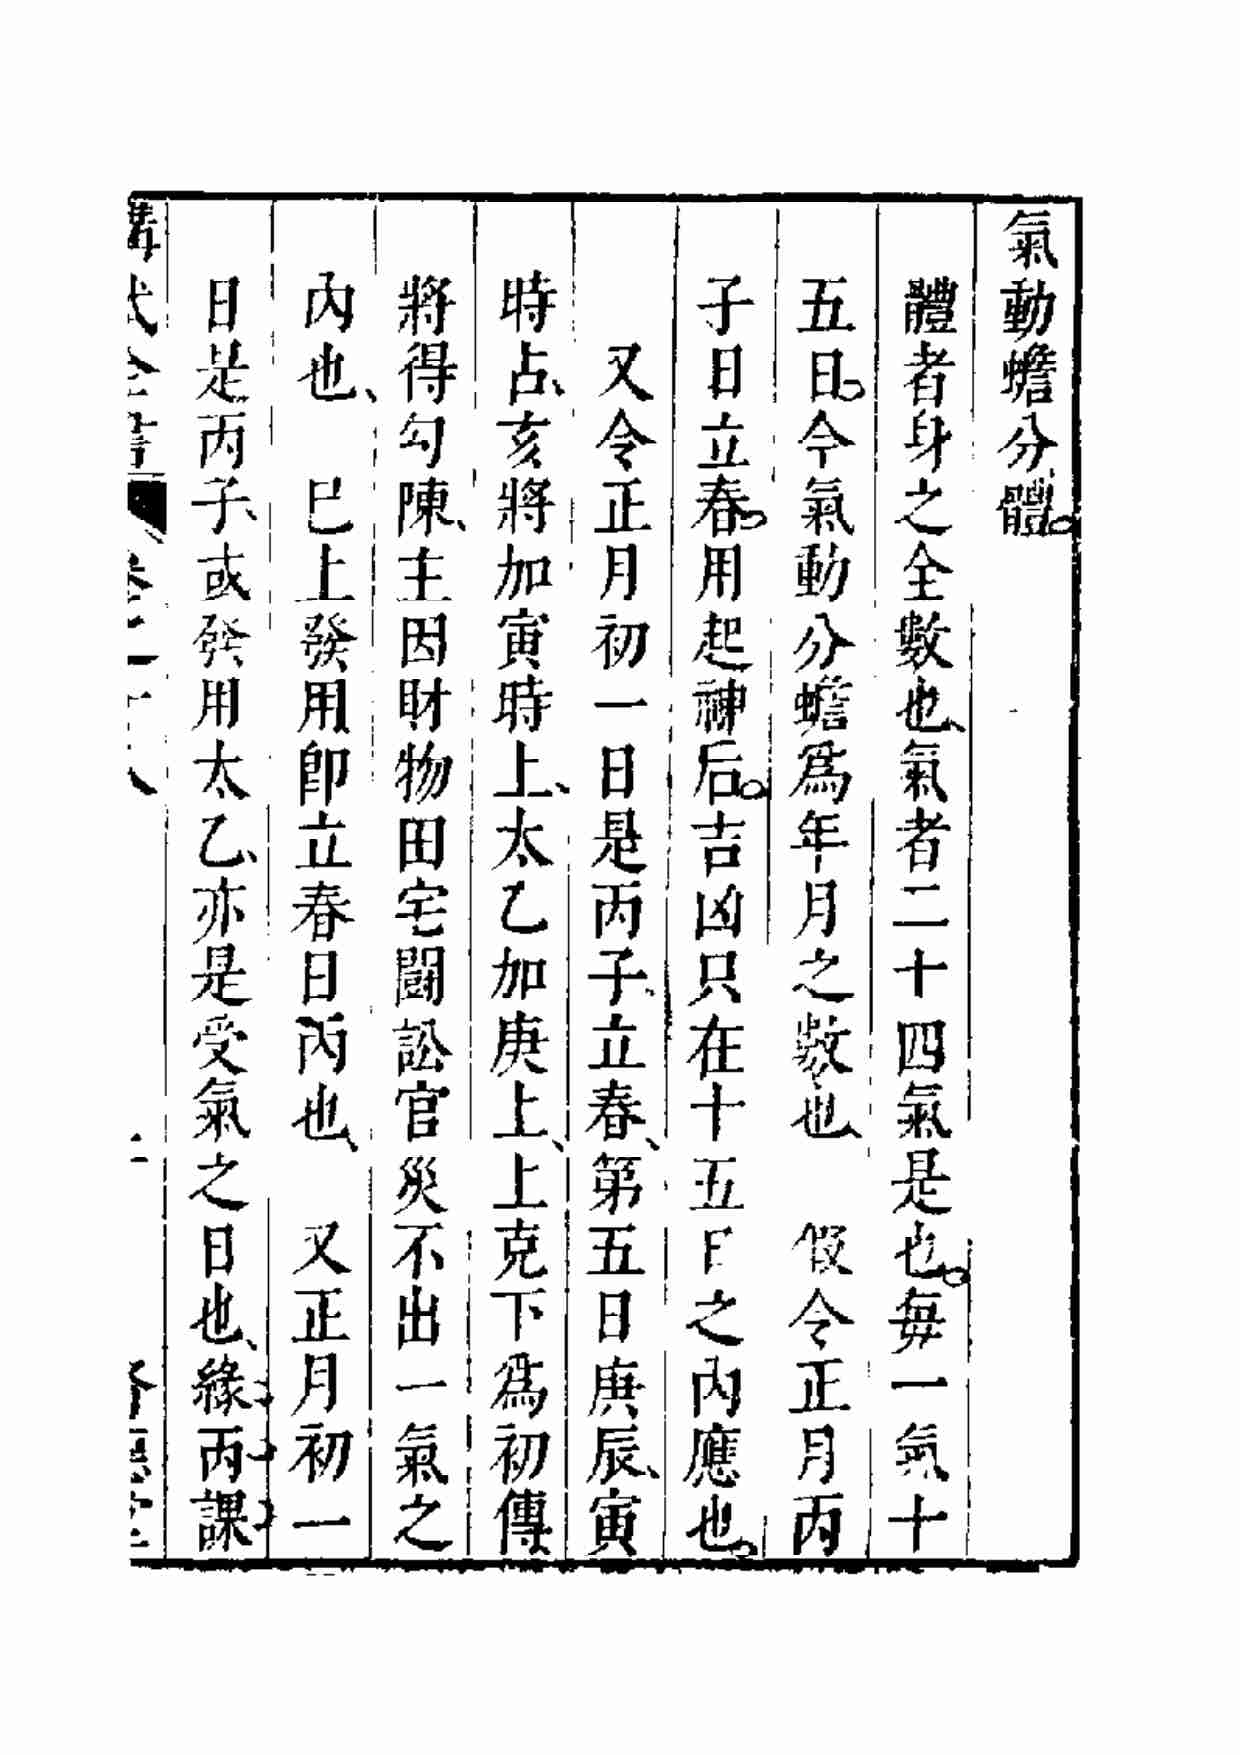 氣動蟾分體。
體者身之全數也、氣者二十四氣是也。每一氣十
五日。今氣動分蟾爲年月之數也、　假令正月丙
子日立春。用起神后。吉凶只在十五日之內應也。
又令正月初一日是丙子、立春、第五日庚辰、寅
時占、亥將加寅時上、太乙加庚上、上克下爲初傳
將得勾陳、主因財物田宅鬪訟官災不出一氣之
內也、　巳上發用卽立春日丙也、　又正月初一
日是丙子、或發用太乙、亦是受氣之日也、緣丙課